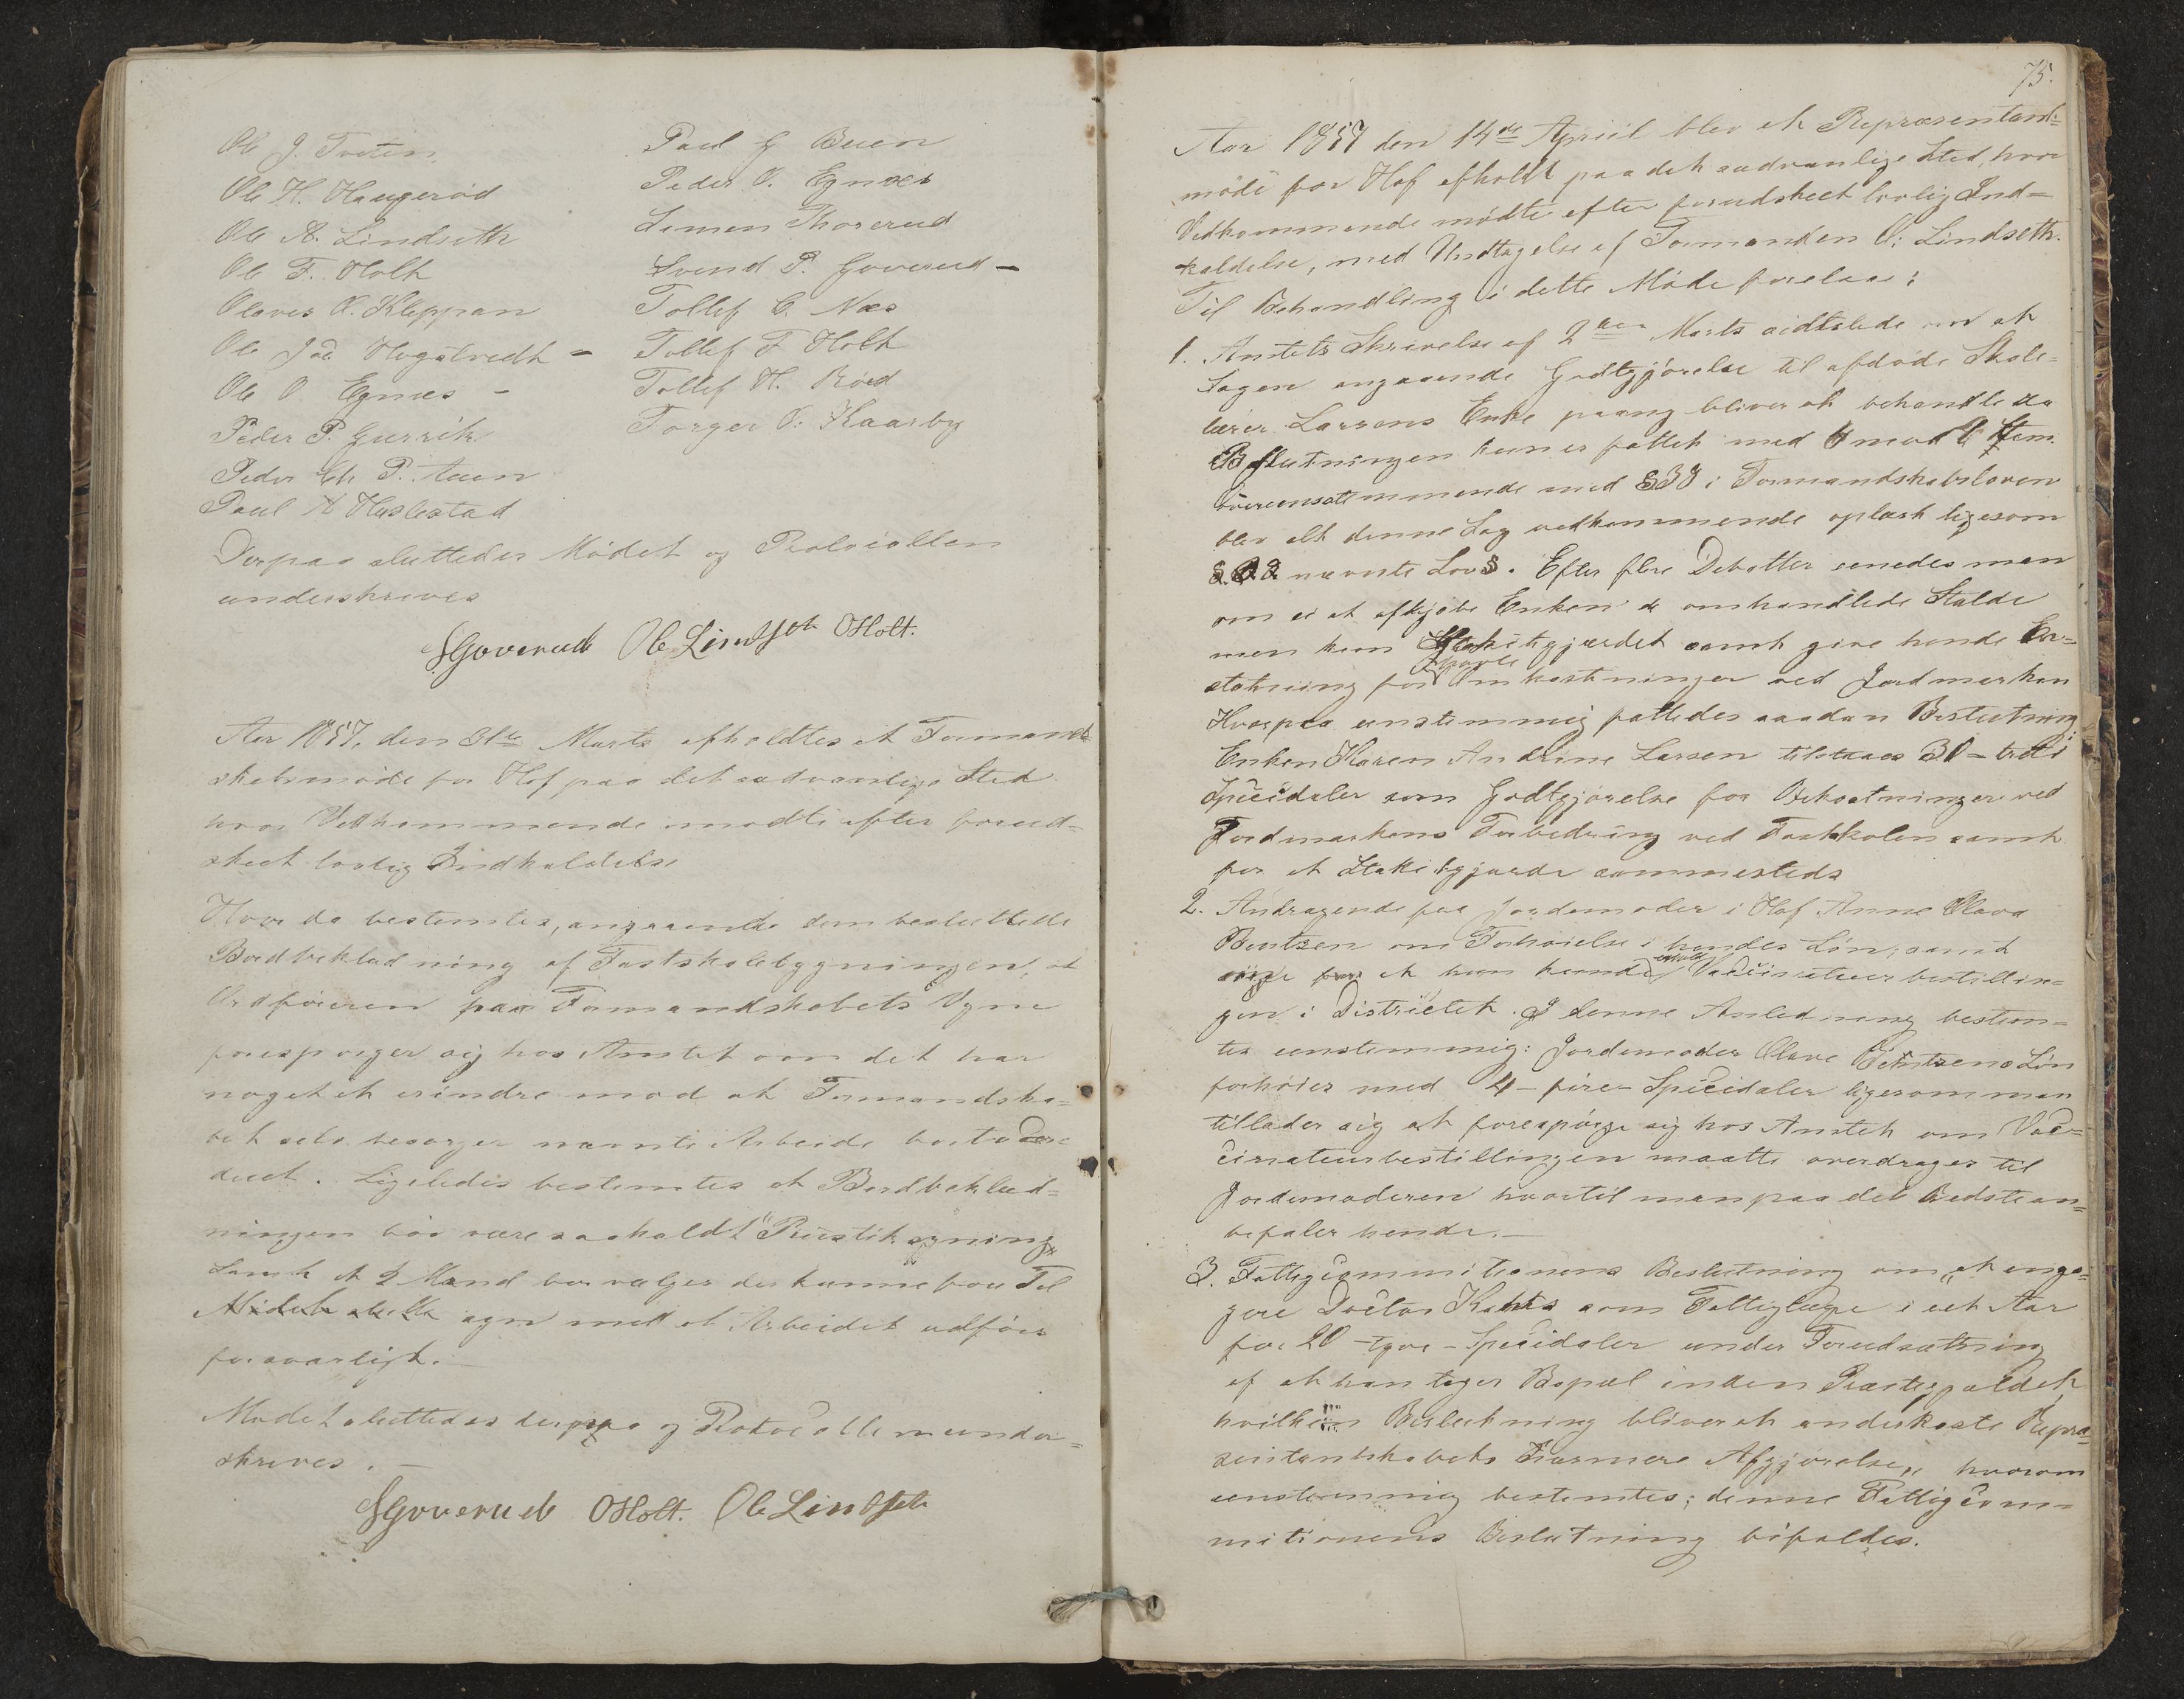 Ole J. Tveten
Ole H. Haugeröd
Ole A. Lindseth
Ole F. Holt
Olaves O. Kleppan
Ole Jac Hogstvedt -
Ole O. Egnæs -
Peder P. Gurrik
Peder Ch. P. Auen
Paul A Haslestad
Paul G Buen
Peder O. Egnæs
Simen Thorerud
Svend P. Goverud -
Tollef C. Næs
Tollef F Holt
Tollef H. Röed
Torger O. Kaarby
Derpaa sluttedes Mödet og Protocollen
underskreves
SGoverud Ole Lindseth OHolt.
Aar 1857, den 31te Marts afholdtes et Formand-
skabsmöde for Hof paa det sædvanlige Sted
hvor Vedkommende mødte efter forud-
skeet lovlig Indkaldelse
Hvor da bestemtes, angaaende den besluttede
Bordbeklædning af Fastskolebygningen, at
Ordföreren paa Formandskabets Vegne
forespørger sig hos Amtet om det har
noget at erindre mod at Formandska=
bet selv besørger nævnte Arbeide
. Ligeledes bestemtes at Bordbeklæd=
ningen bör være saakaldt "Rustik
Samt at 2 Mænd bør vælges der kunne före Til
syn med at Arbeidet udföres
forsvarligt. -
Mødet sluttedes derpaa og Protocollen under=
skreves. -
SGoverud OHolt. Ole Lindseth
75.
Aar 1857 den 14de April blev et Repræsentant=
möde for Hof afholdt paa det sædvanlige Sted, hvor
Vedkommende mødte efter forudskeet lovlig Ind=
kaldelse, med Undtagelse af Formanden O. Lindseth.
Til Behandling i dette Möde forelaae:
1. Amtets Skrivelse af 2den Marts sidstlede om at
Sagen angaaende Godtgjörelse til afdöde Skole=
lærer Larsens Enke paany bliver at behandle da
Beslutningen kun er fattet med mod Stem.
Overensstemmende med § 38 i Formandskabsloven
blev alt denne Sag vedkommende oplæst ligesom
nævnte Lovs §. Efter flere Debatter eenedes man
om ei at afkjöbe Enken de omhandlede Stalde
men kun Stakitgjærdet samt give hende Er=
statning for havte Omkostninger ved Jordmarken
Hvorpaa eenstemmig fattedes saadan Beslutning:
Enken Karen Andrine Larsen tilstaaes 30 - tredi
Speciedaler som Godtgjörelse for Bekostninger ved
Jordmarkens Forbedring ved Fastskolen samt
for et Stakitgjærde sammesteds
2. Andragende fra Jordemoder i Hof Anne Olava
Bentzen om Forhöielse i hendes Lön, samt
at hun kunde erholde Vaccinateurbestillin=
gen i Districtet. I denne Anledning bestem=
tes eenstemmig: Jordemoder Olava Bentzens Lön
forhöies med 4 - fire - Speciedaler ligesom man
tillader sig at forespörge sig hos Amtet om Vac=
cinateurbestillingen maatte overdrages til
Jordemoderen hvortil man paa det Bedste an=
befaler hende. -
3. Fattigcommitionens Beslutning om "at enga=
gere Doctor Kahrs som Fattiglæge i eet Aar
for 20 - tyve - Speciedaler under Forudsætning
af at han tager Bopæl inden Præstegjældet,
hvilken Beslutning bliver at underkaste Repræ=
sentantskabets nærmere Afgjörelse", hvorom
eenstemmig bestemtes; denne Fattigcom=
mitionens Beslutning bifaldes.